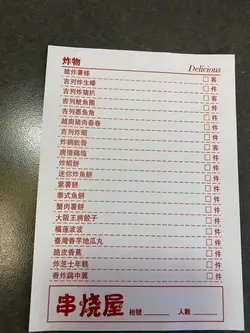 炸物
Delicious
脆炸薯條 □ 客
吉列炸生蠔 □ 件
吉列炸豬扒 □ 件
吉列魷魚圈 □ 件
吉列墨魚角 □ 件
越南豬肉春卷 □ 件
吉列炸蝦 □ 件
炸雞軟骨 □ 件
唐揚雞塊 □ 件
炸蝦餅 □ 件
迷你炸魚餅 □ 件
紫薯餅 □ 件
泰式魚餅 □ 件
蟹肉薯餅 □ 件
大阪王將餃子 □ 件
榴蓮波波 □ 件
臺灣香芋地瓜丸 □ 件
脆皮香蕉 □ 件
炸芝士年糕 □ 件
香炸雞中翼 □ 件
串烧屋 枱號 人數